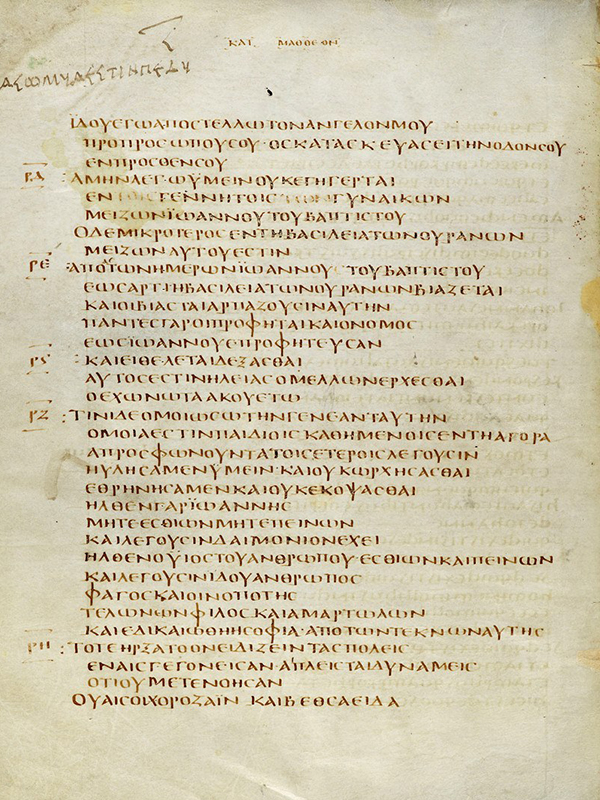 ΚΑΤ ΜΑΘΘΕΟΝ
ΪΔΟΥΕΓΩΑΠΟΣΤΕΛΛΩΤΟΝΑΝΓΕΛΟΝΜΟΥ
ΠΡΟΠΡΟΣΩΠΟΥΣΟΥ·ΟΣΚΑΤΑΣΚΕΥΑΣΕΙΤΗΝΟΔΟΝΣΟΥ
ΕΝΠΡΟΣΘΕΝΣΟΥ
ΡΔ :ΑΜΗΝΛΕΓΩΫΜΕΙΝΟΥΚΕΓΗΓΕΡΤΑΙ
ΕΝ ΓΕΝΝΗΤΟΙΣ ΓΥΝΑΙΚΩΝ
ΜΕΙΖΩΝΪΩΑΝΝΟΥΤΟΥΒΑΠΤΙΣΤΟΥ
ΟΔΕΜΙΚΡΟΤΕΡΟΣΕΝΤΗΒΑΣΙΛΕΙΑΤΩΝΟΥΡΑΝΩΝ
ΜΕΙΖΩΝΑΥΤΟΥΕΣΤΙΝ
ΡΕ :ΑΠΟΤΩΝΗΜΕΡΩΝΪΩΑΝΝΟΥ ΤΟΥΒΑΠΤΙΣΤΟΥ
ΕΩΣΑΡΤΙΗΒΑΣΙΛΕΙΑΤΩΝΟΥΡΑΝΩΝΒΙΑΖΕΤΑΙ
ΚΑΙΟΙΒΙΑΣΤΑΙΑΡΠΑΖΟΥΣΙΝΑΥΤΗΝ
ΠΑΝΤΕΣΓΑΡΟΙΠΡΟΦΗΤΑΙΚΑΙΟΝΟΜΟΣ
ΕΩΣΪΩΑΝΝΟΥΕΠΡΟΦΗΤΕΥΣΑΝ
ΡϚ :ΚΑΙΕΙΘΕΛΕΤΑΙΔΕΞΑΣΘΑΙ
ΑΥΤΟΣΕΣΤΙΝΗΛΕΙΑΣΟΜΕΛΛΩΝΕΡΧΕΣΘΑΙ
ΟΕΧΩΝΩΤΑΑΚΟΥΕΤΩ
ΡΖ :ΤΙΝΙΔΕΟΜΟΙΩΣΩΤΗΝΓΕΝΕΑΝΤΑΥΤΗΝ
ΟΜΟΙΑΕΣΤΙΝΠΑΙΔΙΟΙΣΚΑΘΗΜΕΝΟΙΣΕΝΤΗΑΓΟΡΑ
ΑΠΡΟΣΦΩΝΟΥΝΤΑΤΟΙΣΕΤΕΡΟΙΣΛΕΓΟΥΣΙΝ
ΗΥΛΗΣΑΜΕΝΫΜΕΙΝ·ΚΑΙΟΥΚΩΡΧΗΣΑΣΘΑΙ
ΕΘΡΗΝΗΣΑΜΕΝΚΑΙΟΥΚΕΚΟΨΑΣΘΑΙ
ΗΛΘΕΝΓΑΡΪΩΑΝΝΗΣ
ΜΗΤΕΕΣΘΙΩΝΜΗΤΕΠΕΙΝΩΝ
ΚΑΙΛΕΓΟΥΣΙΝΔΑΙΜΟΝΙΟΝΕΧΕΙ
ΗΛΘΕΝΟΫΙΟΣΤΟΥΑΝΘΡΩΠΟΥ·ΕΣΘΙΩΝΚΑΙΠΕΙΝΩΝ
ΚΑΙΛΕΓΟΥΣΙΝΪΔΟΥΑΝΘΡΩΠΟΣ
ΦΑΓΟΣΚΑΙΟΙΝΟΠΟΤΗΣ
ΤΕΛΩΝΩΝΦΙΛΟΣΚΑΙΑΜΑΡΤΩΛΩΝ
ΚΑΙΕΔΙΚΑΙΩΘΗΗΣΟΦΙΑ·ΑΠΟΤΩΝΤΕΚΝΩΝΑΥΤΗΣ
ΡΗ :ΤΟΤΕΗΡΞΑΤΟΟΝΕΙΔΙΖΕΙΝΤΑΣΠΟΛΕΙΣ
ΕΝΑΙΣΓΕΓΟΝΕΙΣΑΝ·ΑΙΠΛΕΙΣΤΑΙΔΥΝΑΜΕΙΣ
ΟΤΙΟΥΜΕΤΕΝΟΗΣΑΝ
ΟΥΑΙΣΟΙΧΟΡΟΖΑΪΝ ΚΑΙΒΕΘΣΑΕΙΔΑ